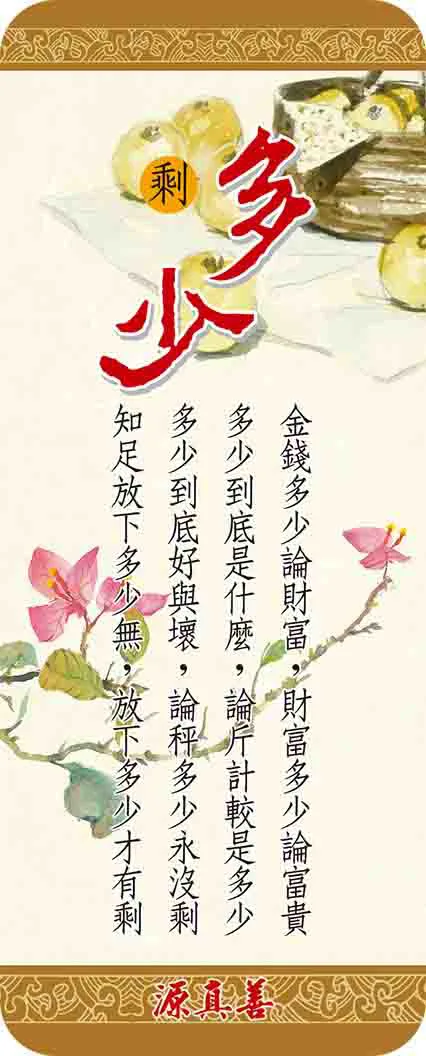 多少
剩
金錢多少論財富,財富多少論富貴
多少到底是什麼,論斤計較是多少
多少到底好與壞,論秤多少永沒剩
知足放下多少無,放下多少才有剩
源真善